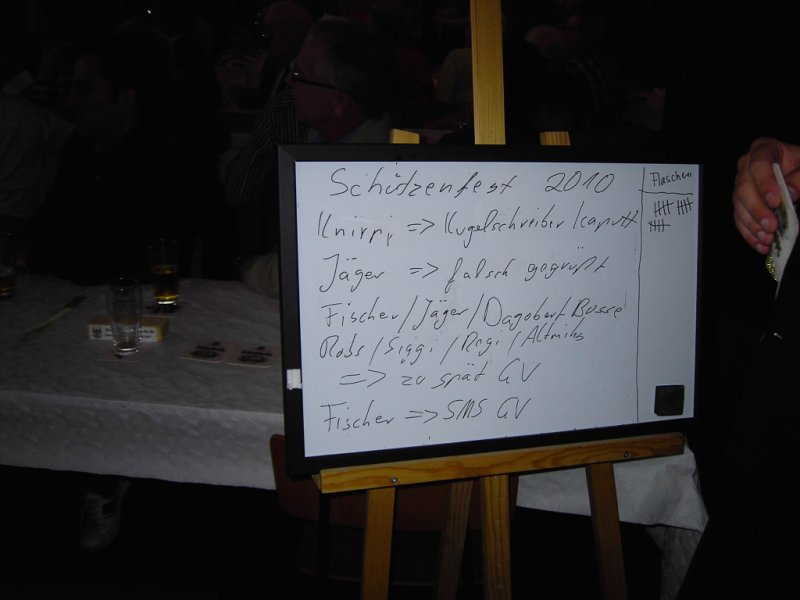 Schützenfest 2010
Flaschen
Knirpi => Kugelschreiber kaputt
Jäger => falsch gegrüßt
Fischer / Jäger / Dagobert Bosse
Robs / Siggi / Regi /
=> zu spät GV
Fischer => SMS GV